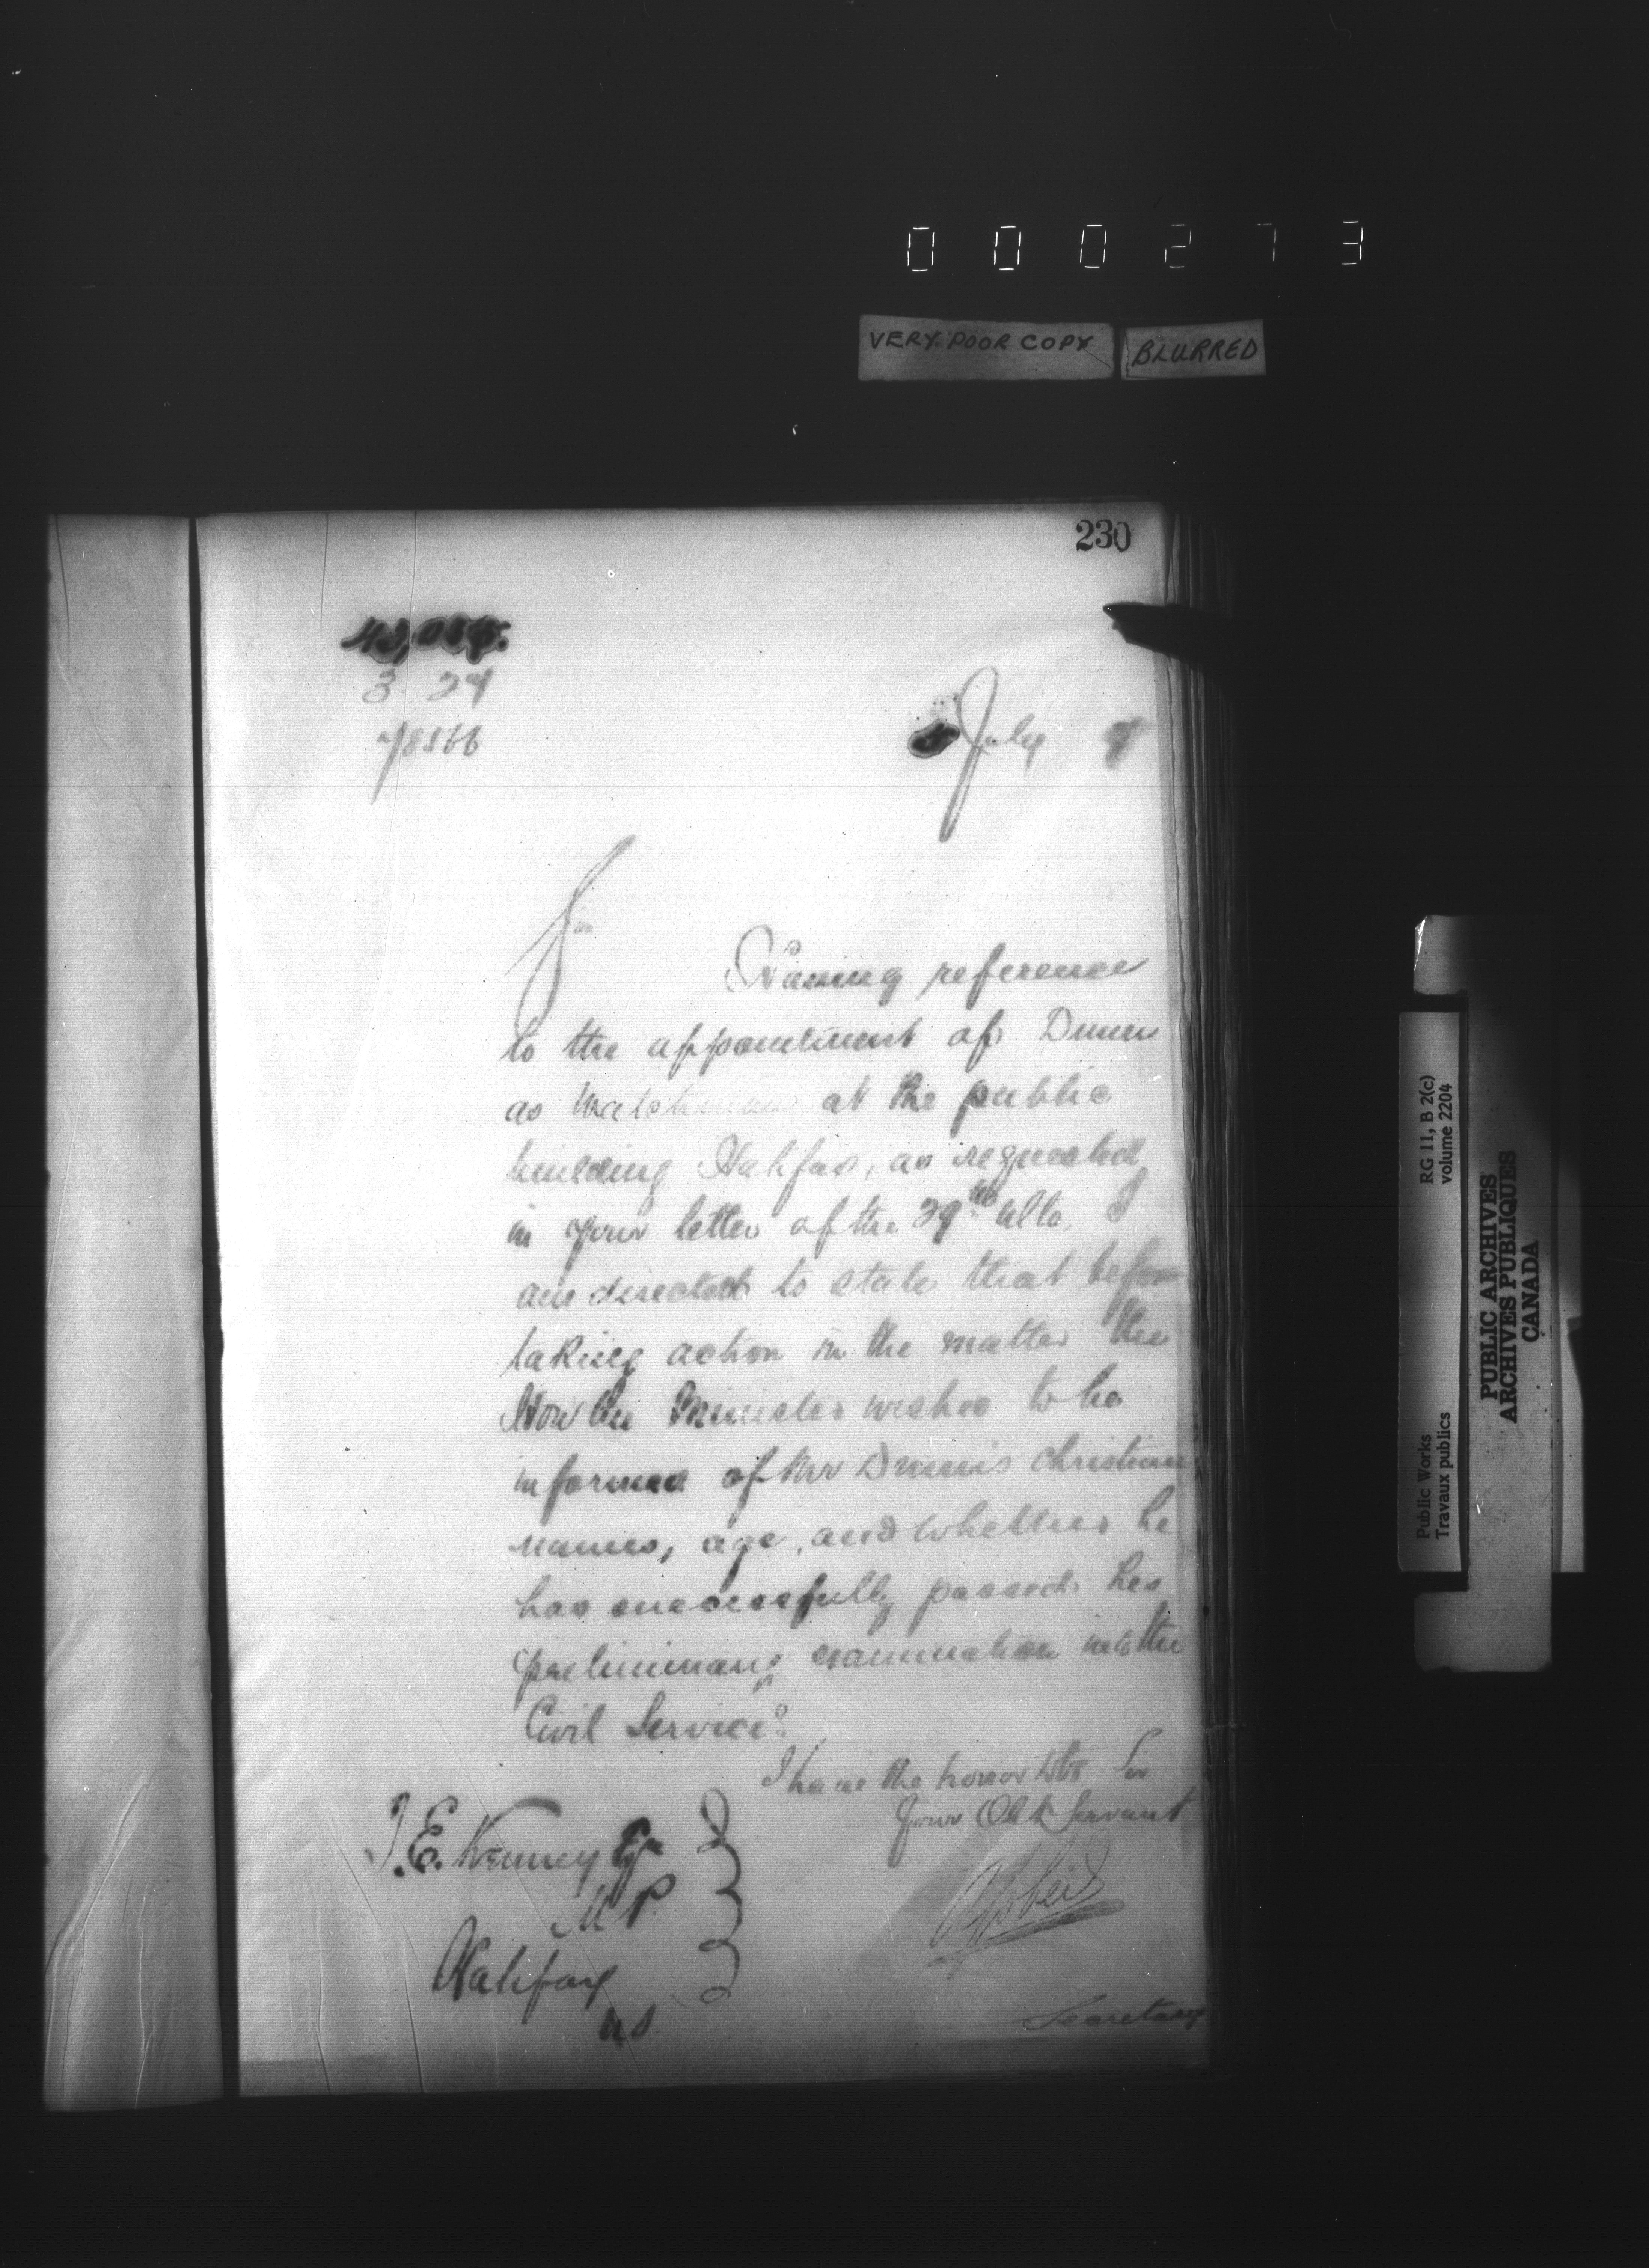 000273
VERY POOR COPY
BLURRED
230
3 29
78566
July 9
Sir
Having reference
to the appointment of Dunn
as Watchman at the public
building Halifax, as requested
in your letter of the 29th ulto, I
am directed to state that before
taking action in the matter the
Honble Minister wishes to be
informed of Mr Dunn's christian
names, age, and whether he
has successfully passed his
preliminary examination into the
Civil Service?
I have the honor to be Sir
Your Obt Servant
Secretary
T.E. Kenney Esq
M P
Halifax
NS
RG 11, B 2(c)
volume 2204
Public Works
Travaux publics
PUBLIC ARCHIVES
ARCHIVES PUBLIQUES
CANADA